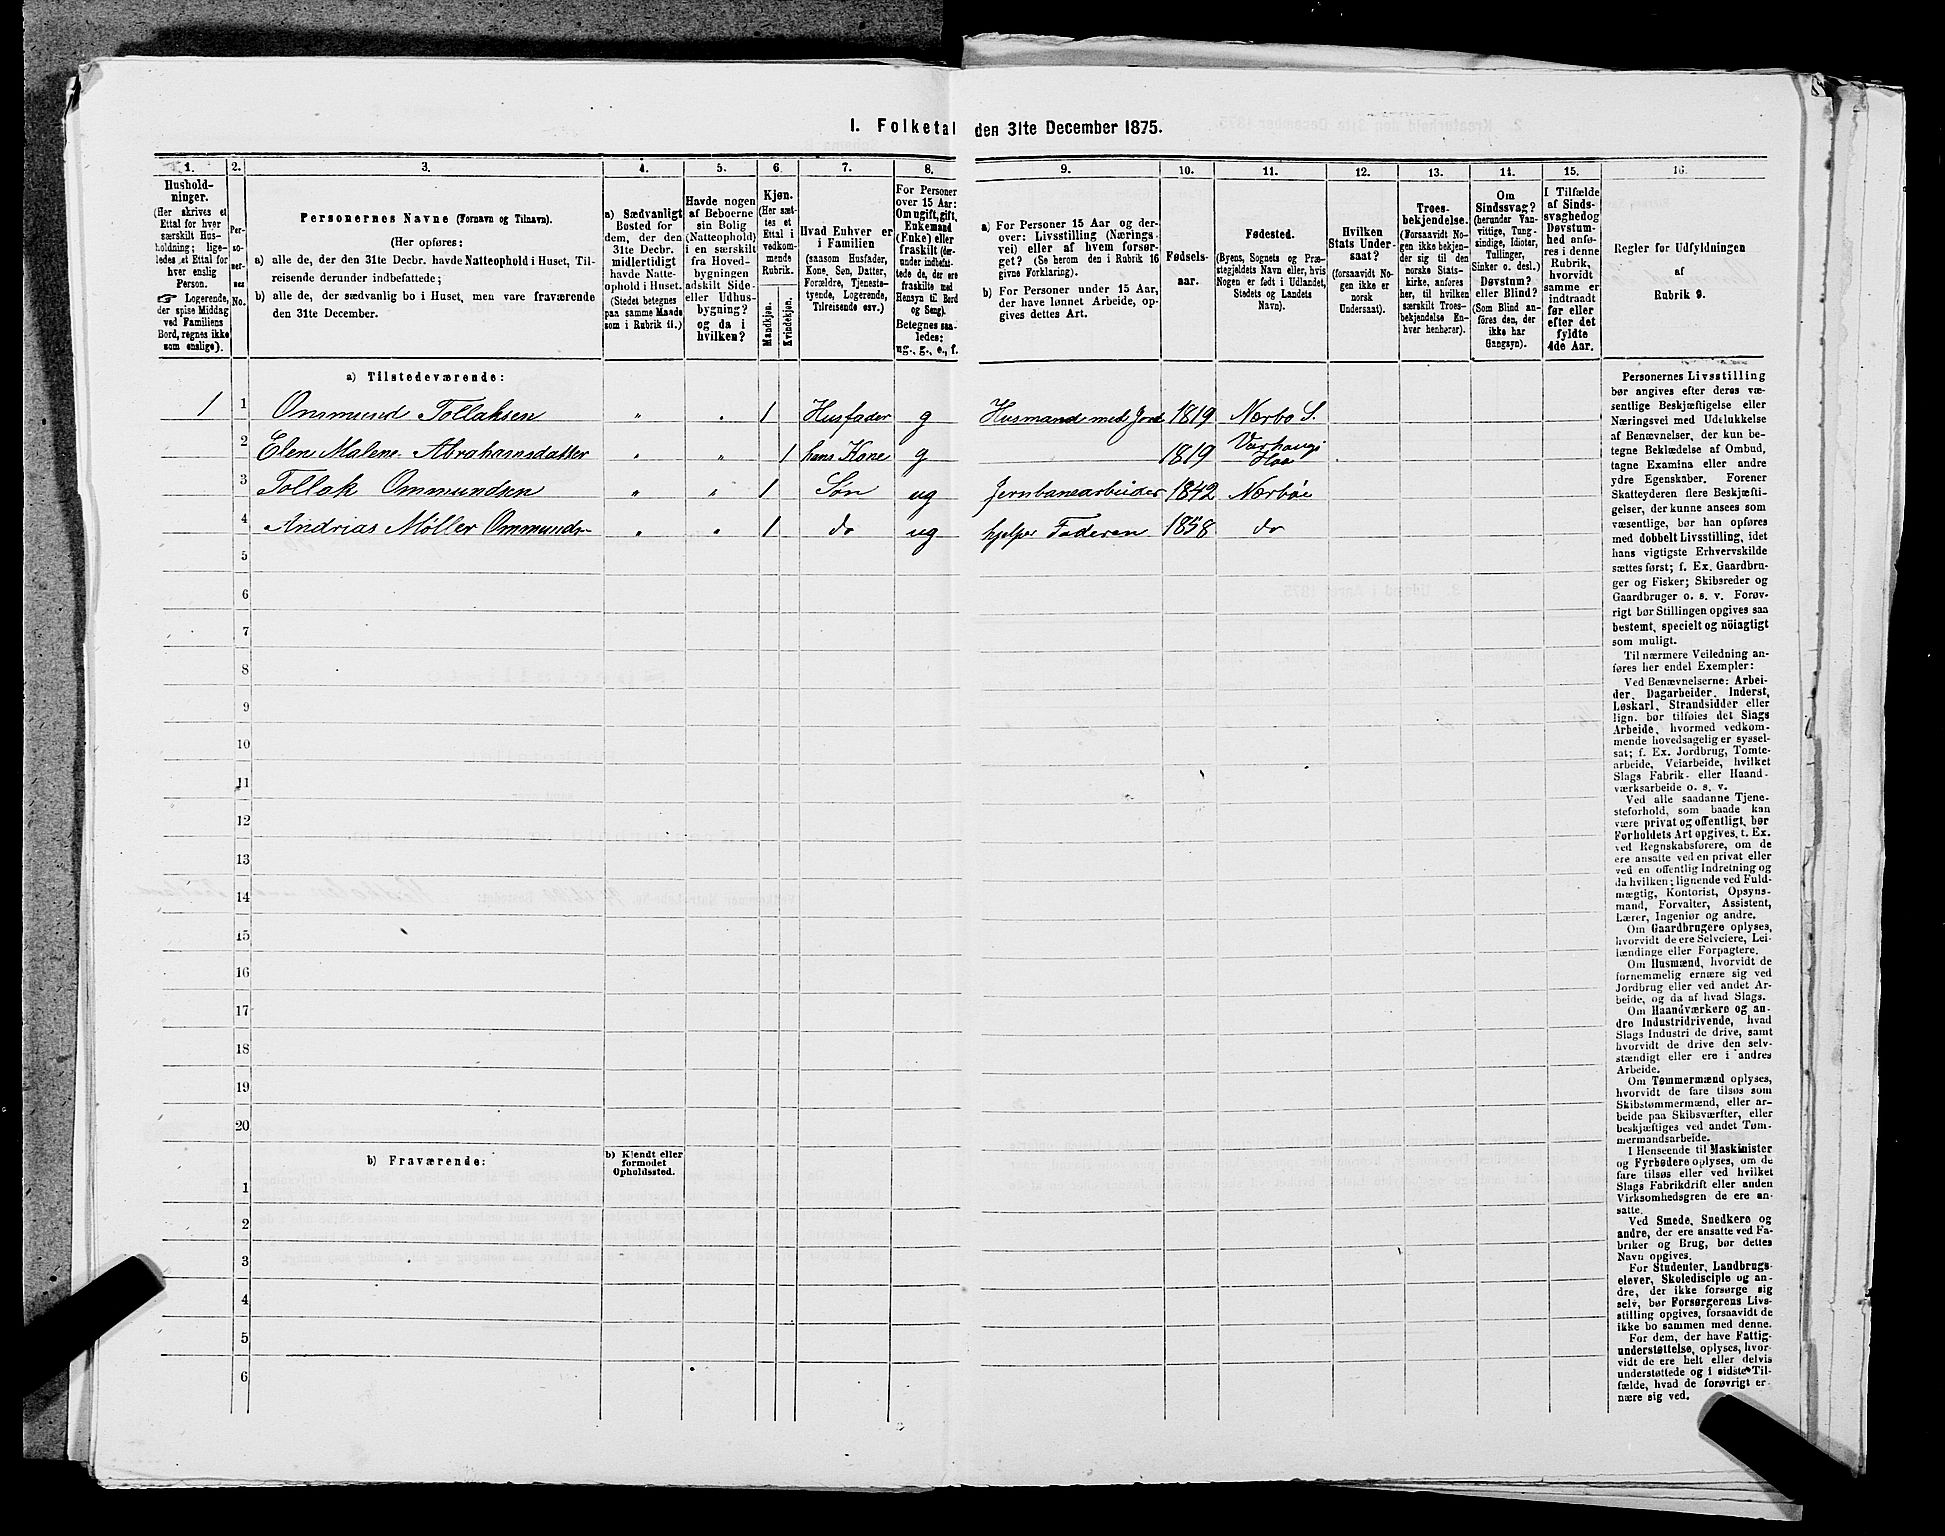 1. Folketal den 31te December 1875.
1.
Hushold-
ninger.
(Her skrives et
Ettal for hver
særskilt Hus-
holdning; lige-
ledes et Ettal for
hver enslig
Person.
☞ Logerende,
der spise Middag
ved Familiens
Bord, regnes ikke
som enslige).
2.
Per-
so-
ner-
nes
No.
3.
Personernes Navne (Fornavn og Tilnavn).
(Her opføres:
a) alle de, der den 31te Decbr. havde Natteophold i Huset, Til-
reisende derunder indbefattede;
b) alle de, der sædvanlig bo i Huset, men vare fraværende
den 31te December.
4.
a) Sædvanligt
Bosted for
dem, der den
31te Decbr.
midlertidigt
havde Natte-
ophold i Huset.
(Stedet betegnes
paa samme Maade
som i Rubrik 11.)
5.
Havde nogen
af Beboerne
sin Bolig
(Natteophold)
i en særskilt
fra Hoved-
bygningen
adskilt Side-
eller Udhus-
bygning?
og da i
hvilken?
6.
Kjøn.
(Her sæt-
tes et
Ettal i
vedkom-
mende
Rubrik.
Mandkjøn.
Kvindekjøn.
7.
Hvad Enhver er
i Familien
(saasom Husfader,
Kone, Søn, Datter,
Forældre, Tjeneste-
tyende, Logerende,
Tilreisende osv.)
8.
For Personer
over 15 Aar:
Om ugift, gift,
Enkemand
(Enke) eller
fraskilt (der-
under indbefat-
tede de, der ere
fraskilte med
Hensyn til Bord
og Seng).
Betegnes saa-
ledes:
ug., g., e., f.
9.
a) For Personer 15 Aar og der-
over: Livsstilling (Nærings-
vei) eller af hvem forsør-
get? (Se herom den i Rubrik 16
givne Forklaring).
b) For Personer under 15 Aar,
der have lønnet Arbeide, op-
gives dettes Art.
10.
Fødsels-
aar.
11.
Fødested.
(Byens, Sognets og Præ-
stegjeldets Navn eller, hvis
Nogen er født i Udlandet,
Stedets og Landets
Navn).
12.
Hvilken
Stats Under-
saat?
(forsaavidt No-
gen ikke er
norsk
Undersaat).
13.
Troes-
bekjendelse.
(Forsaavidt No-
gen ikke bekjen-
der sig til den
norske Stats-
kirke, anføres
her, til hvilken
særskilt Troes-
bekjendelse En-
hver henhører).
14.
Om
Sindssvag?
(herunder Van-
vittige, Tung-
sindige, Idioter,
Tullinger,
Sinker o. desl.)
Døvstum?
eller Blind?
(Som Blind an-
føres den, der
ikke har
Gangsyn).
15.
I Tilfælde
af Sinds-
svaghed og
Døvstum-
hed anfø-
res i denne
Rubrik,
hvorvidt
samme er
indtraadt
før eller
efter det
fyldte
4de Aar.
16.
Regler for Udfyldningen
af
Rubrik 9.
a) Tilstedeværende:
1 1 Ommund Tollaksen " " 1 Husfader g Husmand med Jord 1819 Nærbo S.
2 Elen Malene Abrahamsdatter " " 1 hans Kone g 1819 Varhaugs Haa
3 Tollak Ommundsen " " 1 Søn ug Jernbanearbeider 1842 Nærböe
4 Andrias Möller Ommunds- " " 1 do ug hjelper Faderen 1858 do
5
6
7
8
9
10
11
12
13
14
15
16
17
18
19
20
b) Fraværende:
b) Kjendt eller
formodet
Opholdssted.
1
2
3
4
5
6
Personernes Livsstilling
bør angives efter deres væ-
sentlige Beskjæftigelse eller
Næringsvei med Udelukkelse
af Benævnelser, der kun be-
tegne Beklædelse af Ombud,
tagne Examina eller andre
ydre Egenskaber. Forener
Skatteyderen flere Beskjæfti-
gelser, der kunne ansees som
væsentlige, bør han opføres
med dobbelt Livsstilling, idet
hans vigtigste Erhvervskilde
sættes først; f. Ex. Gaardbru-
ger og Fisker; Skibsreder og
Gaardbruger o. s. v. Forøv-
rigt bør Stillingen opgives saa
bestemt, specielt og nöiagtigt
som muligt.
Til nærmere Veiledning an-
føres her endel Exempler:
Ved Benævnelserne: Arbei-
der, Dagarbeider, Inderst,
Løskarl, Strandsidder eller
lign. bør tilføies det Slags
Arbeide, hvormed vedkom-
mende hovedsagelig er syssel-
sat; f. Ex. Jordbrug, Tomte-
arbeide, Veiarbeide, hvilket
Slags Fabrik- eller Haand-
værksarbeide o. s. v.
Ved alle saadanne Tjene-
steforhold, som baade kan
være privat og offentligt, bør
Forholdets Art opgives, t. Ex.
ved Regnskabsførere, om de
ere ansatte ved en privat eller
ved en offentlig Indretning og
da hvilken; lignende ved Fuld-
mægtig, Kontorist, Opsyns-
mand, Forvalter, Assistent,
Lærer, Ingeniør og andre.
Om Gaardbrugere oplyses,
hvorvidt de ere Selveiere, Lei-
lændinge eller Forpagtere.
Om Husmænd, hvorvidt de
fornemmelig ernære sig ved
Jordbrug eller ved andet Ar-
beide, og da af hvad Slags.
Om Haandværkere og an-
dre Industridrivende, hvad
Slags Industri de drive, samt
hvorvidt de drive den selv-
stændigt eller ere i andres
Arbeide.
Om Tømmermænd oplyses,
hvorvidt de fare tilsøs som
Skibstømmermænd, eller ar-
beide paa Skibsværfter, eller
beskjæftiges ved andet Tøm-
mermandsarbeide.
I Henseende til Maskinister
og Fyrbødere oplyses, om de
fare tilsøs eller ved hvilket
Slags Fabrikdrift eller anden
Virksomhedsgren de ere an-
satte.
Ved Smede, Snedkere og
andre, der ere ansatte ved Fa-
briker og Brug, bør dettes
Navn opgives.
For Studenter, Landbrugs-
elever, Skoledisciple og an-
dre, der ikke forsørge sig
selv, bør Forsørgerens Livs-
stilling opgives, forsaavidt de
ikke bo sammen med denne.
For dem, der have Fattig-
understøttelse, oplyses, hvor-
vidt de ere helt eller delvis
understøttede og i sidste Til-
fælde, hvad de forøvrigt er-
nære sig ved.